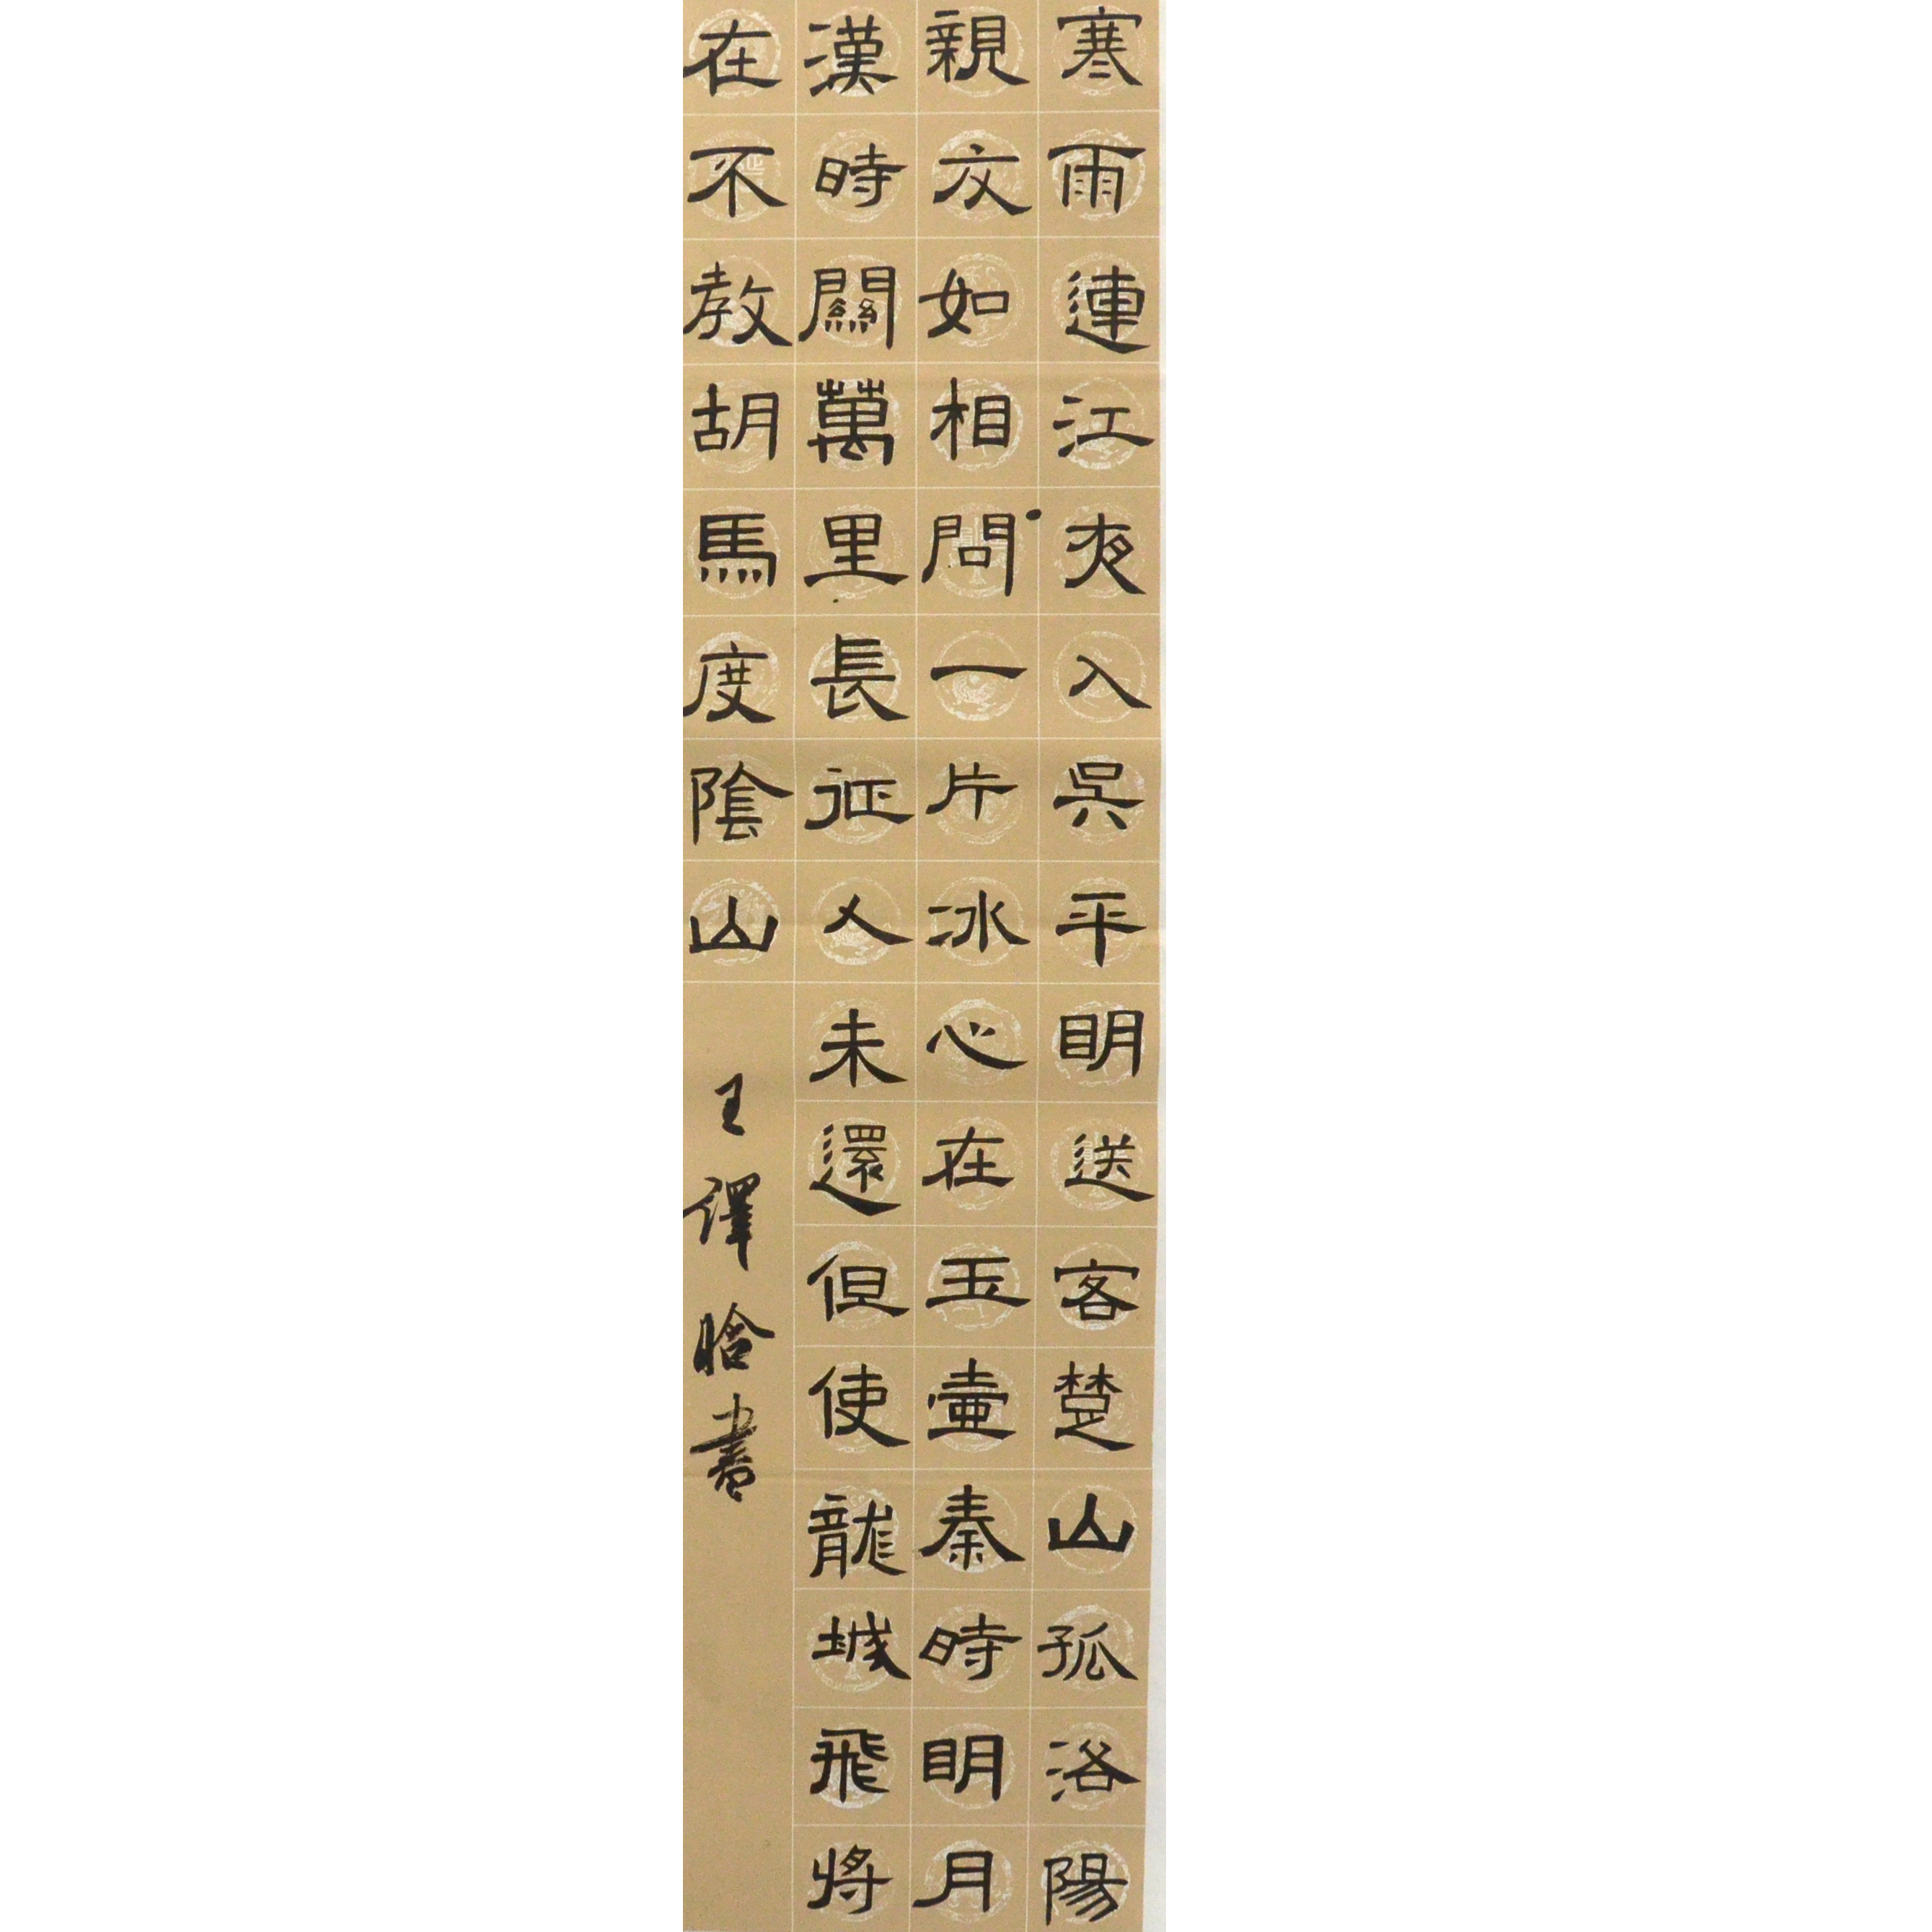 寒雨連江夜入吳平明送客楚山孤洛陽
親友如相問一片冰心在玉壺秦時明月
漢時關萬里長征人未還但使龍城飛將
在不教胡馬度陰山
王譯晗書